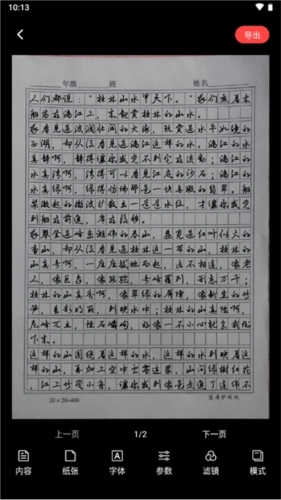 10:13
导出
年级 班 姓名
人们都说："桂林山水甲天下。"我们乘着木
船荡在漓江上，来观赏桂林的山水。
我看见过波澜壮阔的大海，玩赏过水平如镜的
西湖，却从没看见过漓江这样的水。漓江的水
真静啊，静得让你感觉不到它在流动；漓江的
水真清啊，清得可以看见江底的沙石；漓江的
水真绿啊，绿得仿佛那是一块无瑕的翡翠。船
桨激起的微波扩散出一道道水纹，才让你感觉
到船在前进，岸在后移。
我攀登过峰峦雄伟的泰山，游览过红叶似火的
香山，却从没看见过桂林这一带的山，桂林的
山真奇啊，一座座拔地而起，各不相连，像老
人，像巨象，像骆驼，奇峰罗列，形态万千；
桂林的山真秀啊，像翠绿的屏障，像新生的竹
笋，色彩明丽，倒映水中；桂林的山真险啊，
危峰兀立，怪石嶙峋，好像一不小心就会栽倒
下来。
这样的山围绕着这样的水，这样的水倒映着这
样的山，再加上空中云雾迷蒙，山间绿树红花
，江上竹筏小舟，让你感到像是走进了连绵不
20×20=400
上一页 1/2 下一页
内容 纸张 字体 参数 滤镜 模式